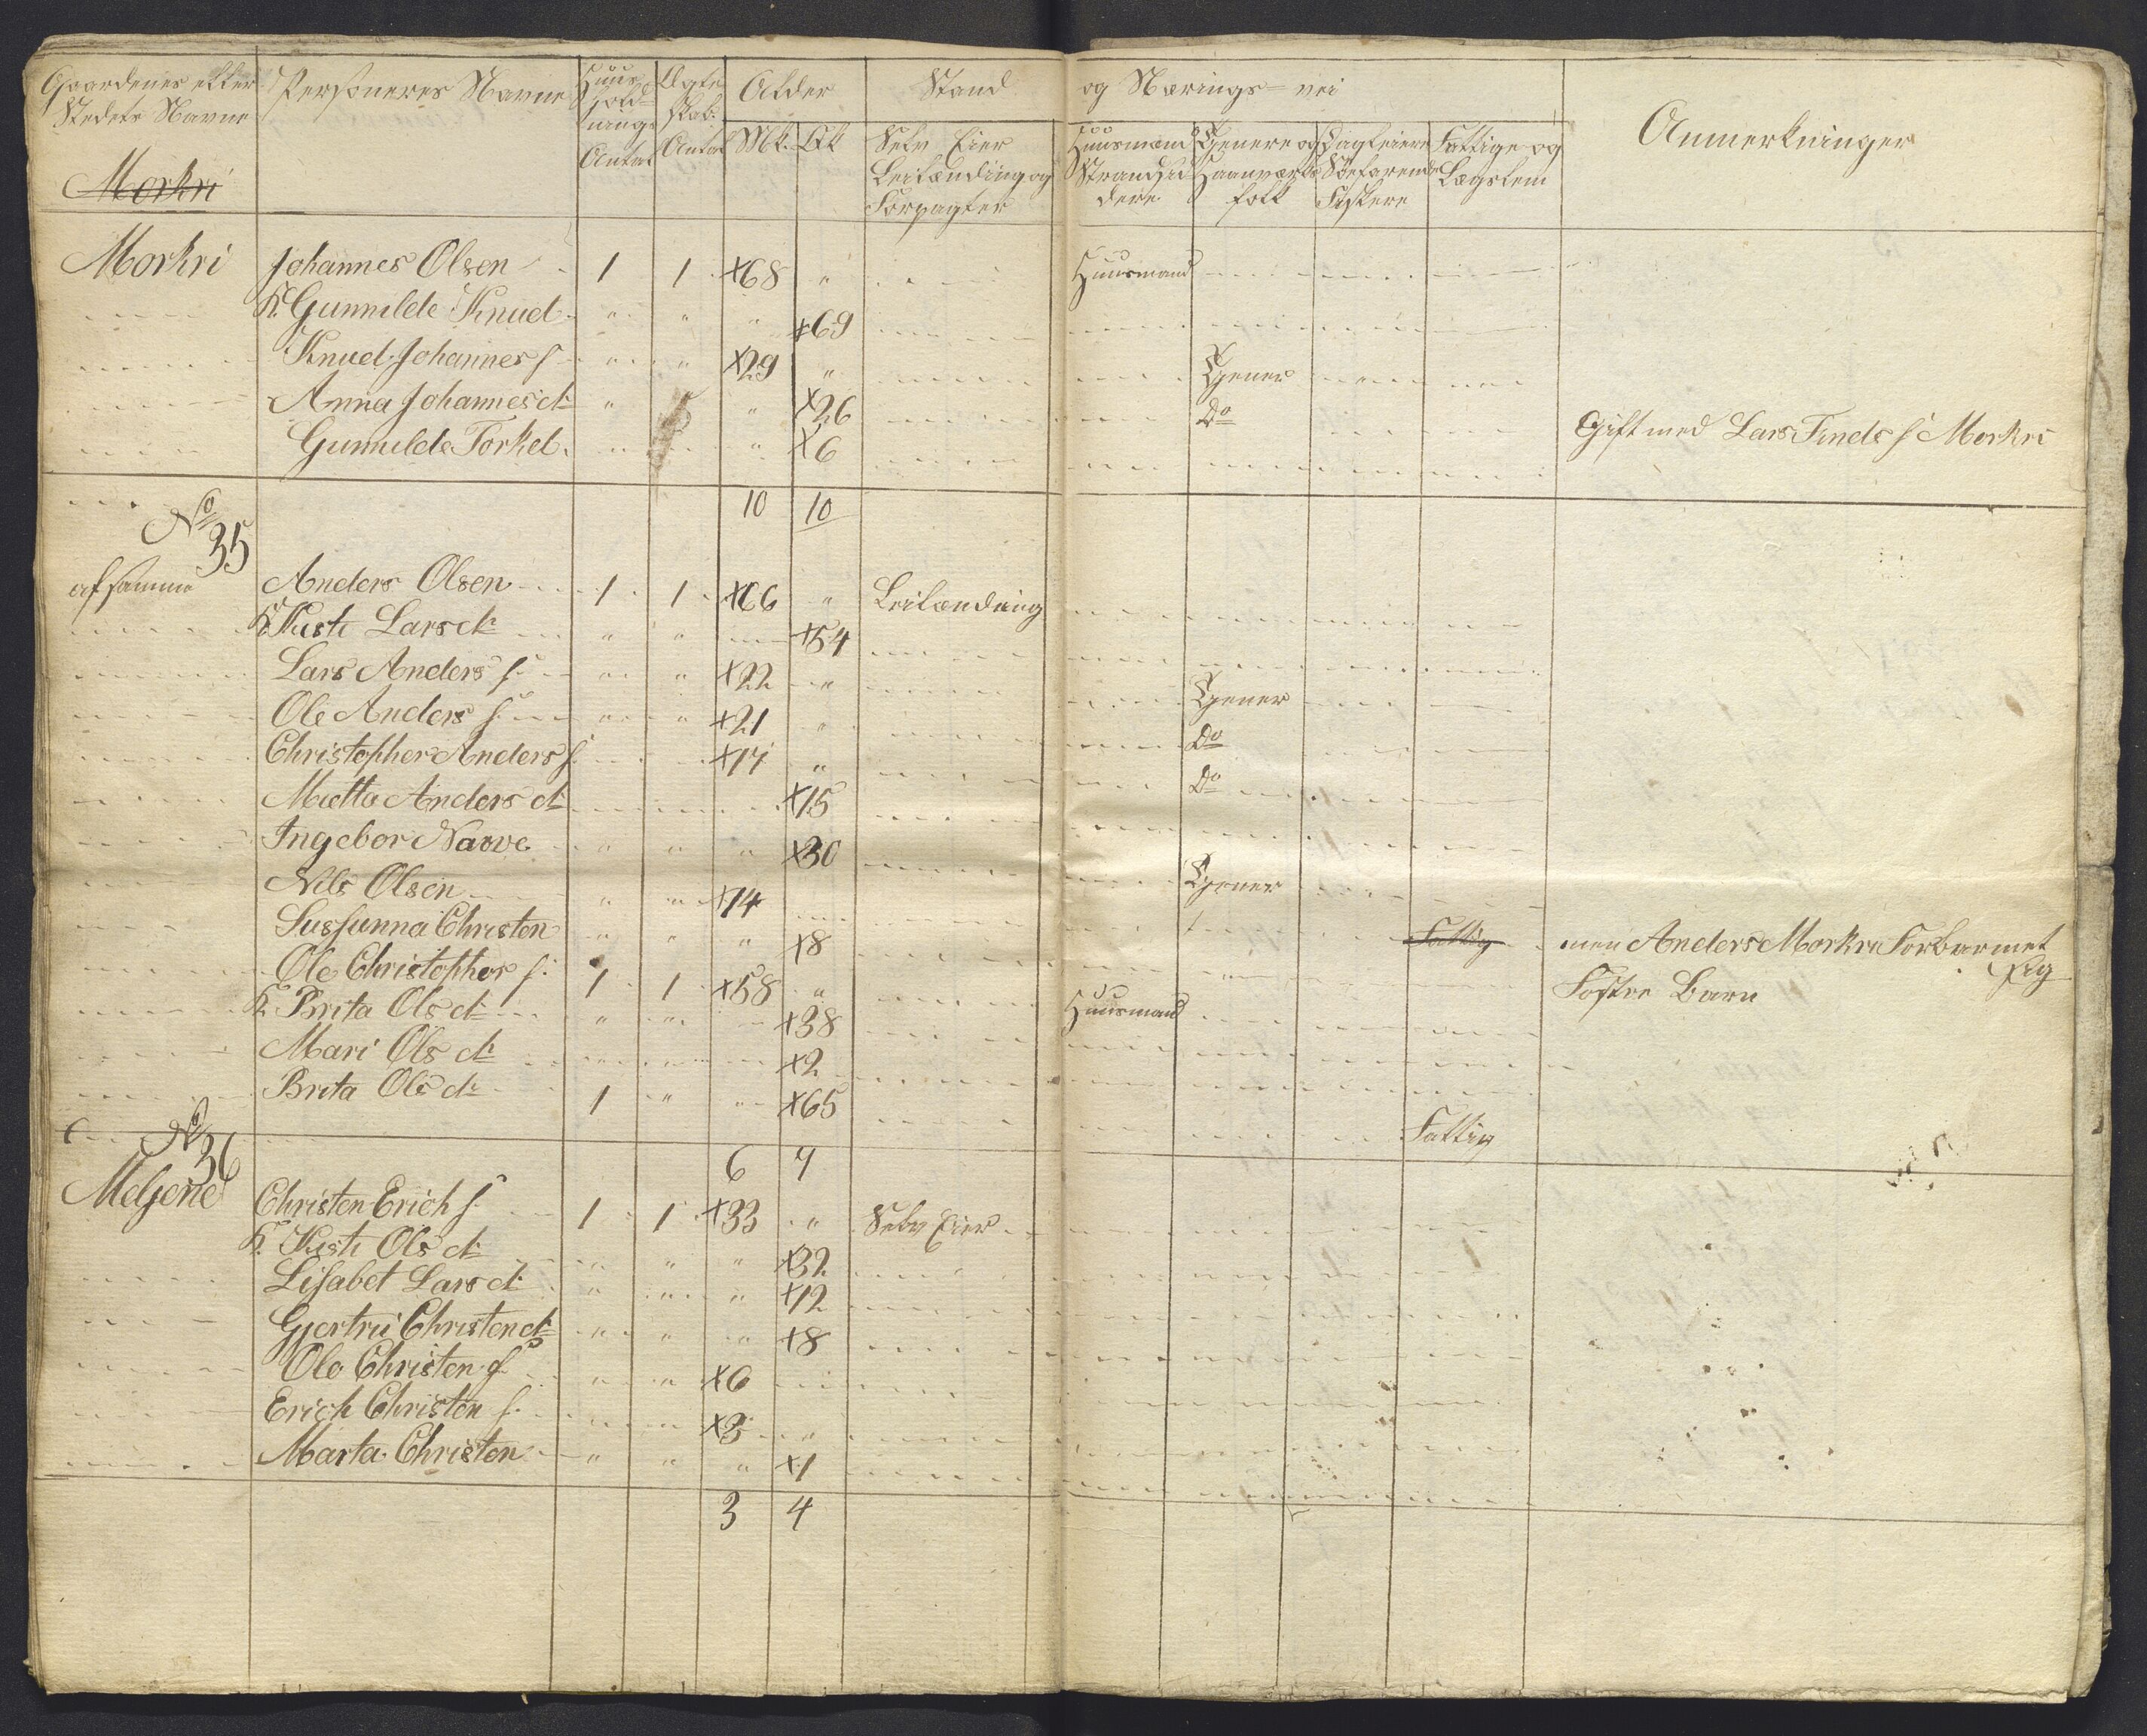 Gaardenes eller Stedets Navne | Personeres Navne | Huus holdnings Antal | Ægte skab: Antal | Alder Mk. Qk | Stand og Nærings-vei | Anmerkninger
Selv Eier Leilænding og Forpagter | Huusmænd Strandsiddere | Tjenere og Haanværks folk | Søefarende Fiskere | Fattige og Lægslem
Morkri
Morkri Johannes Olsen 1 1 +68 " Huusmand
K. Gunnilde Knud " " " +69
Knud Johannes s " " +29 " Tjener
Anna Johannes d: " " +26 Do Gift med Lars Finds s Morkri
Gunnilde Torkel " " +6
10 10
No 35
af samme Anders Olsen 1 1 +66 " Leilænding
K. Kisti Lars d: " " +54
Lars Anders s. " " +22 " Tjener
Ole Anders s. " " +21 " Do
Christopher Anders s. +17 " Do
Mietta Anders d: +15
Ingebor Narve " " " +30 Tjener
Nils Olsen " " +14
Sussunna Christen " " " +8 Fattig men Anders Morkri Forbarmet sig
Fostre Barn
Ole Christopher s: 1 1 +58 " Huusmand
K. Brita Ols d: " " +38
Mari Ols d: +2
Brita Ols d: 1 " " +65 Fattig
6 9
No 36
Meljerne Christen Erich s. 1 1 +33 " Selv Eier
K. Kisti Ols d: " " " +32
Lisabet Lars d: " " " +12
Gjertru Christen d: " " " +8
Ole Christen s " " +6
Erich Christen s. +3 "
Marta Christen " " " +1
3 4